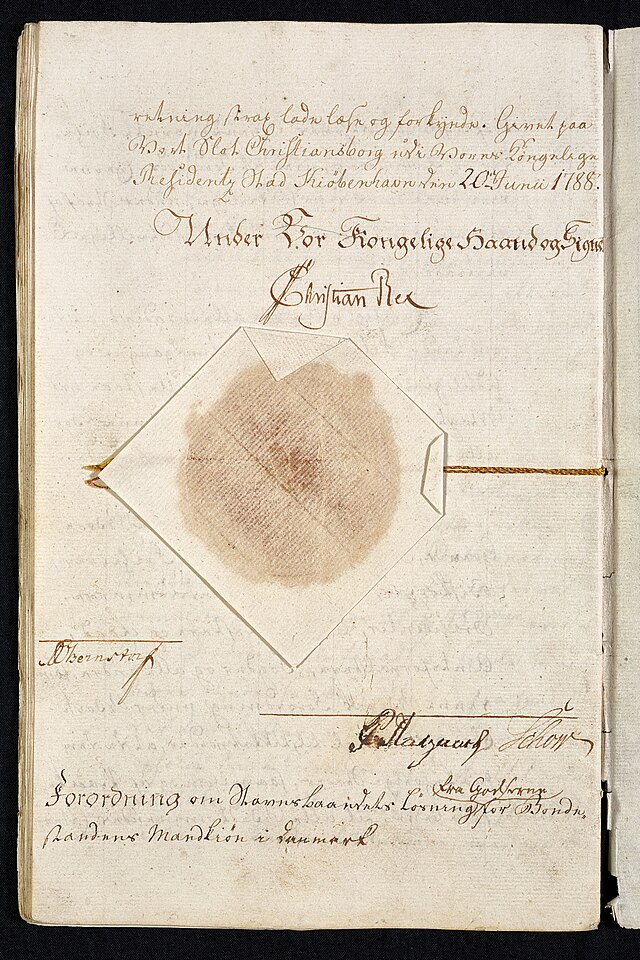 retning strax lade læse og forkynde. Givet paa
Vort Slot Christiansborg udi Vores Kongelige
Residentz Stad Kiöbenhavn den 20de Junii 1788.
Under Vor Kongelige Haand og Signe
Christian Rex
ABernstorf
Schow
fra Godserne
Forordning om Stavnsbaandets Løsning for Bonde-
standens Mandkiön i Danmark